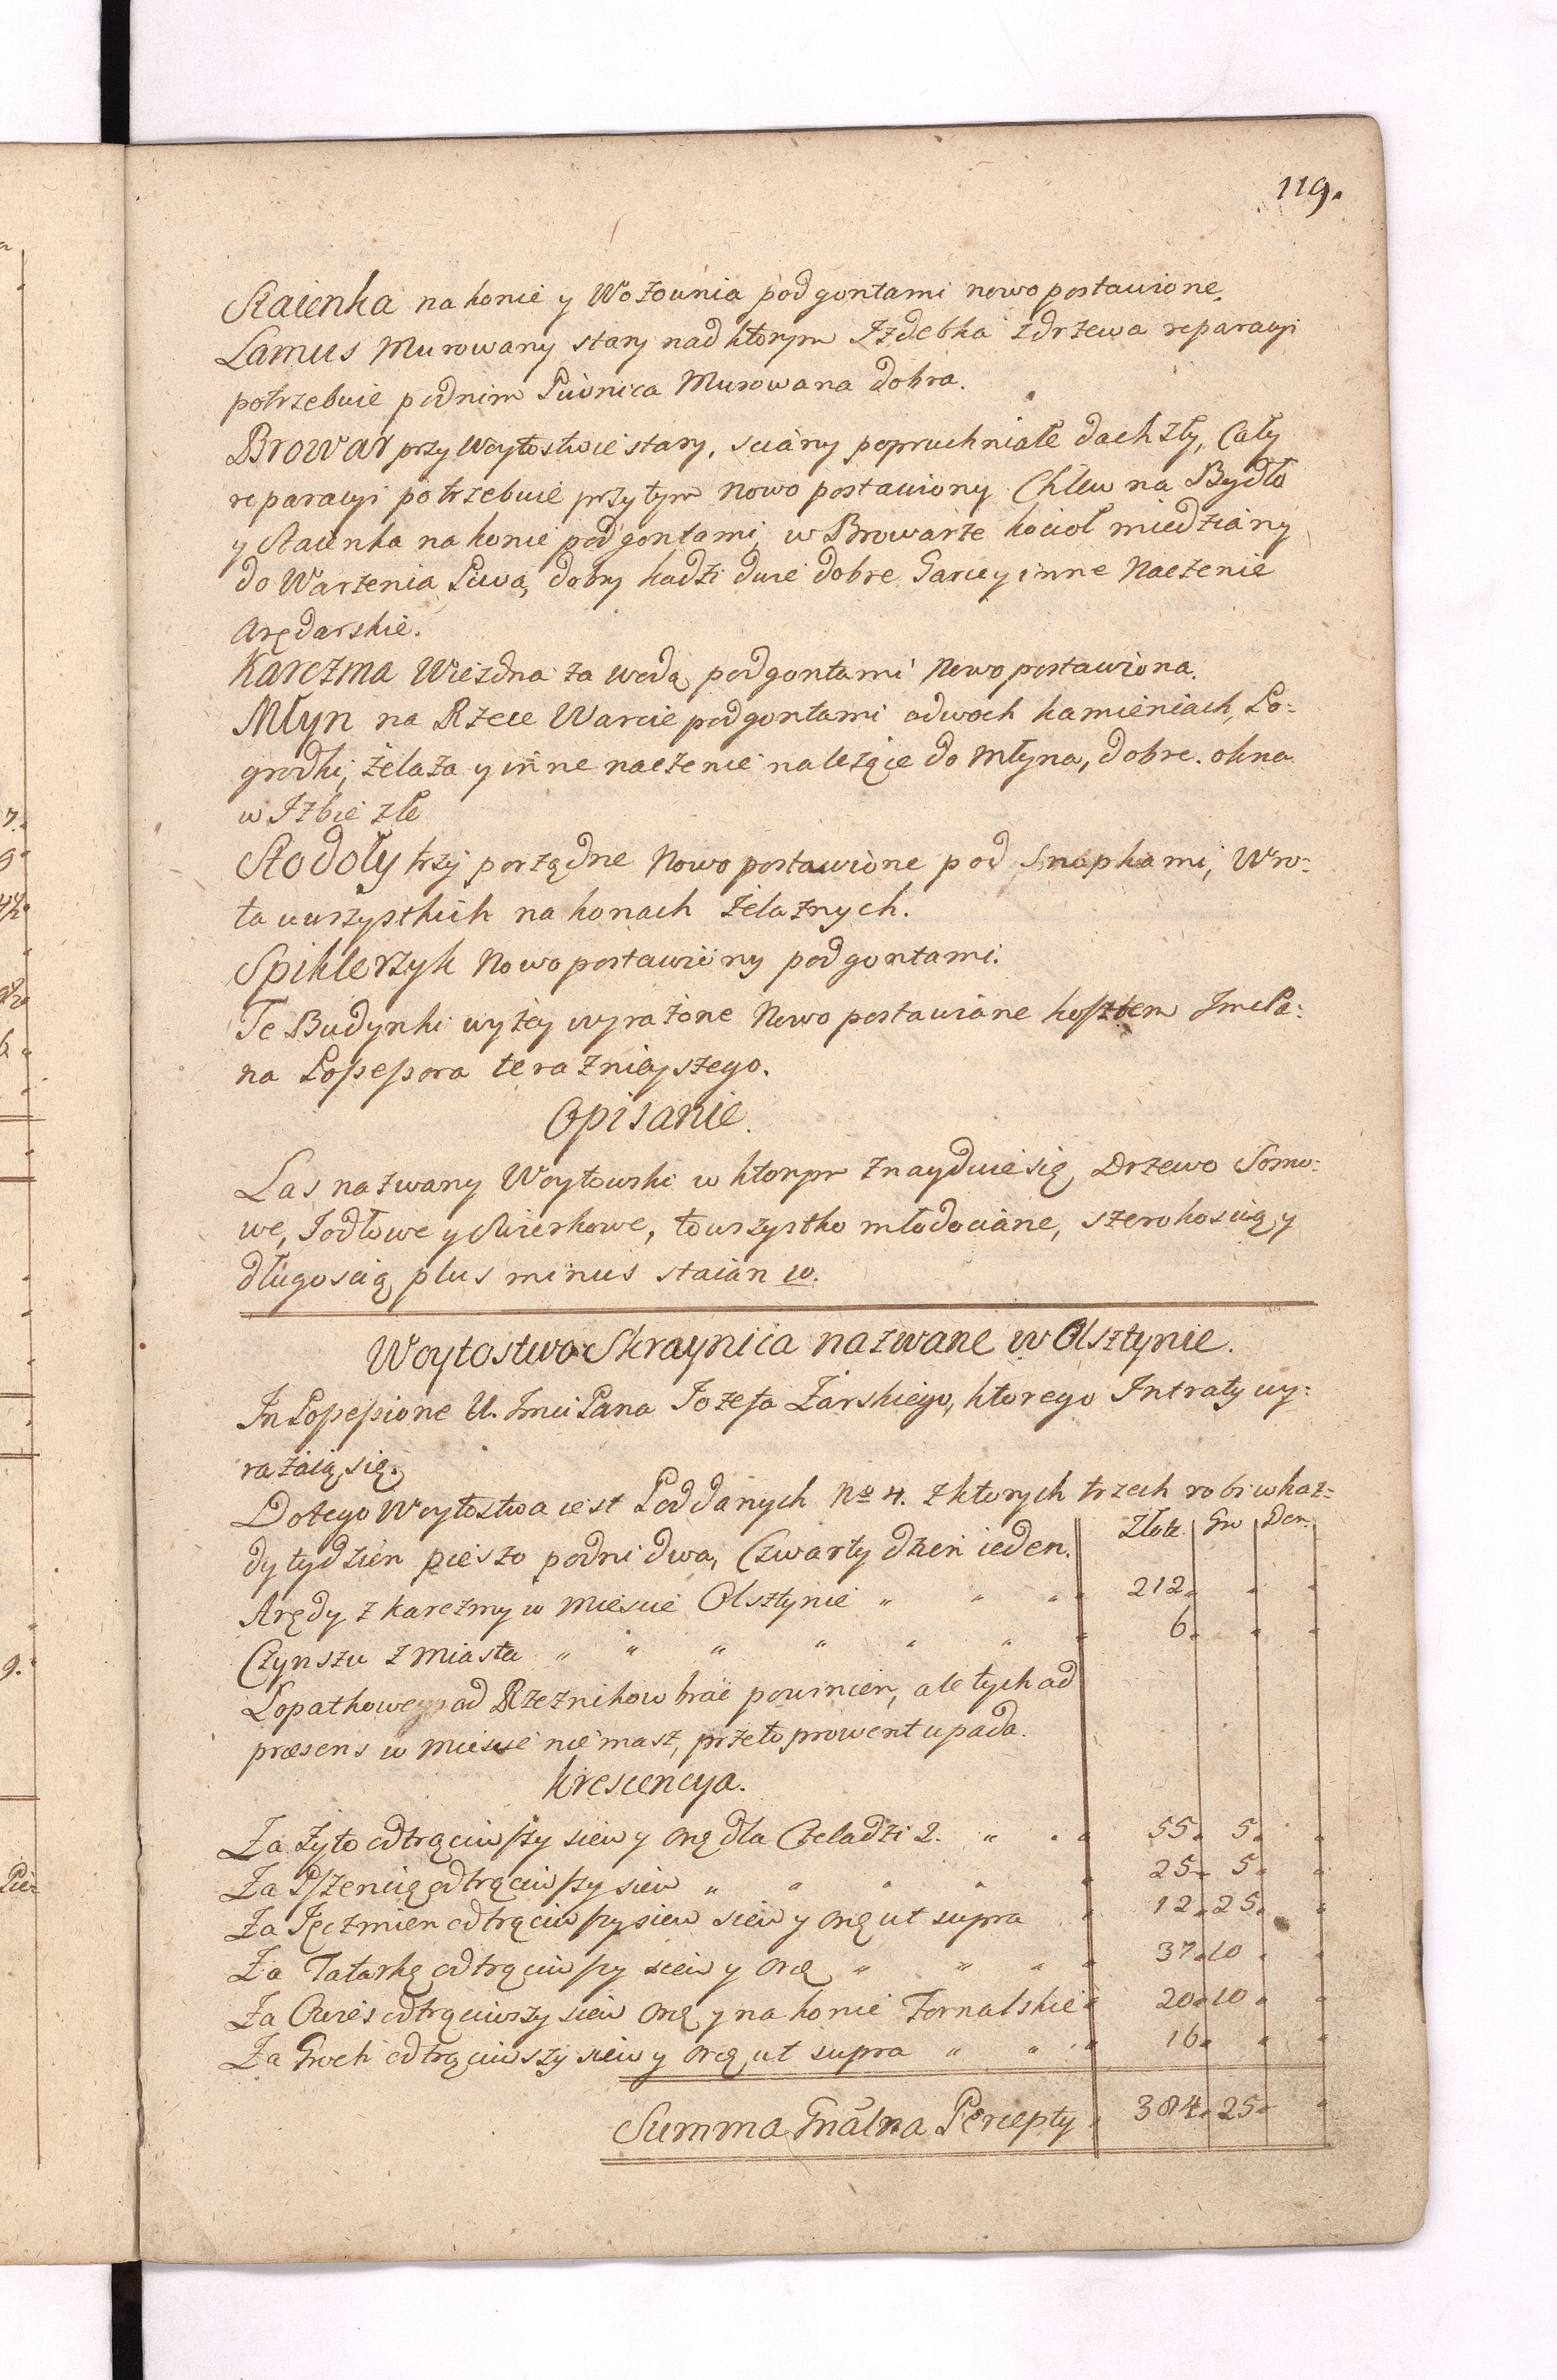 119.
Staienka na konie y Wozownia pod gontami nowo postawione.
Lamus Murowany stary nad ktorym Izdebka z drzewa reparacyi
potrzebuie pod nim Piwnica Murowana dobra.
Browar przy Woytostwie stary, sciany popruchniałe dach zły, Cały
reparacyi potrzebuie przy tym nowo postawiony Chlew na Bydło
y Staienka na konie pod gontami, w Browarze kocioł miedziany
do Warzenia Piwa, dobry kadzi dwie dobre Garcy y inne Naczenie
Arędarskie.
Karczma Wiezdna za wodą pod gontami Nowo postawiona.
Młyn na Rzece Warcie pod gontami o dwoch kamieniach, Po-
grodki, żelaza y inne naczenie nalezące do Młyna, dobre. okna
w Izbie złe
Stodoły trzy porządne Nowo postawione pod Snopkami, Wro-
ta u wszystkich na konach żelaznych.
Spiklerzyk Nowo postawiony pod gontami.
Te Budynki wyżey wyrażone Nowo postawiane kosztem Jmc Pa-
na Possessora teraznieyszego.
Opisanie.
Las nazwany Woytowski w ktorym znayduie się Drzewo Sosno-
we, Jodłowe y Swierkowe, to wszystko młodociane, szerokoscią y
długoscią plus minus staian 10.
Woytostwo Skraynica nazwane w Olsztynie.
In Possessione U. Jmci Pana Jozefa Żarskiego, ktorego Intraty wy-
rażaią się.
Do tego Woytostwa iest Poddanych No 4. z ktorych trzech robi w kaz-
dy tydzien pieszo po dni dwa, Czwarty dzien ieden. Złote Gro Den.
Arędy z Karczmy w Miescie Olsztynie " " " 212 " "
Czynszu z Miasta " " " " " " " 6 " "
Łopatkowego od Rzeznikow brać powinien, ale tych ad
præsens w Miescie nie masz, przeto prowent upada.
Krescencya.
Za Żyto odtrąciwszy siew y Orą dla Czeladzi 2. " " " 55 5 "
Za Pszenicę odtrąciwszy siew " " " " " 25 5 "
Za Jęczmien odtrąciwszy siew siew y Orą ut supra " 12 25 "
Za Tatarkę odtrąciwszy siew y Orą " " " " 37 10 "
Za Owies odtrąciwszy siew Orą y na konie Fornalskie " 20 10 "
Za Groch odtrąciwszy siew y Orą ut supra " " " 16 " "
Summa Gnalna Percepty " 384 25 "